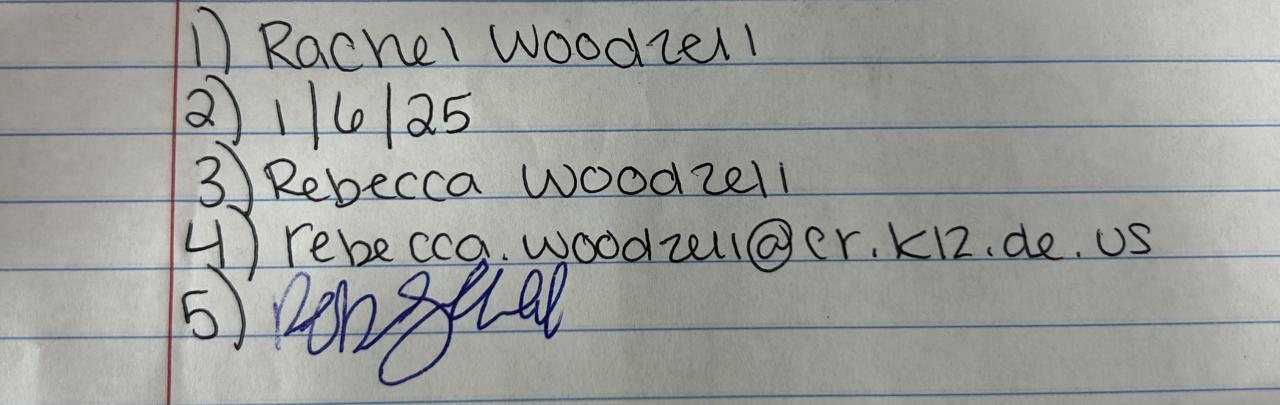 1) Rachel Woodzell
2) 1/6/25
3) Rebecca Woodzell
4) rebecca.woodzell@cr.k12.de.us
5)